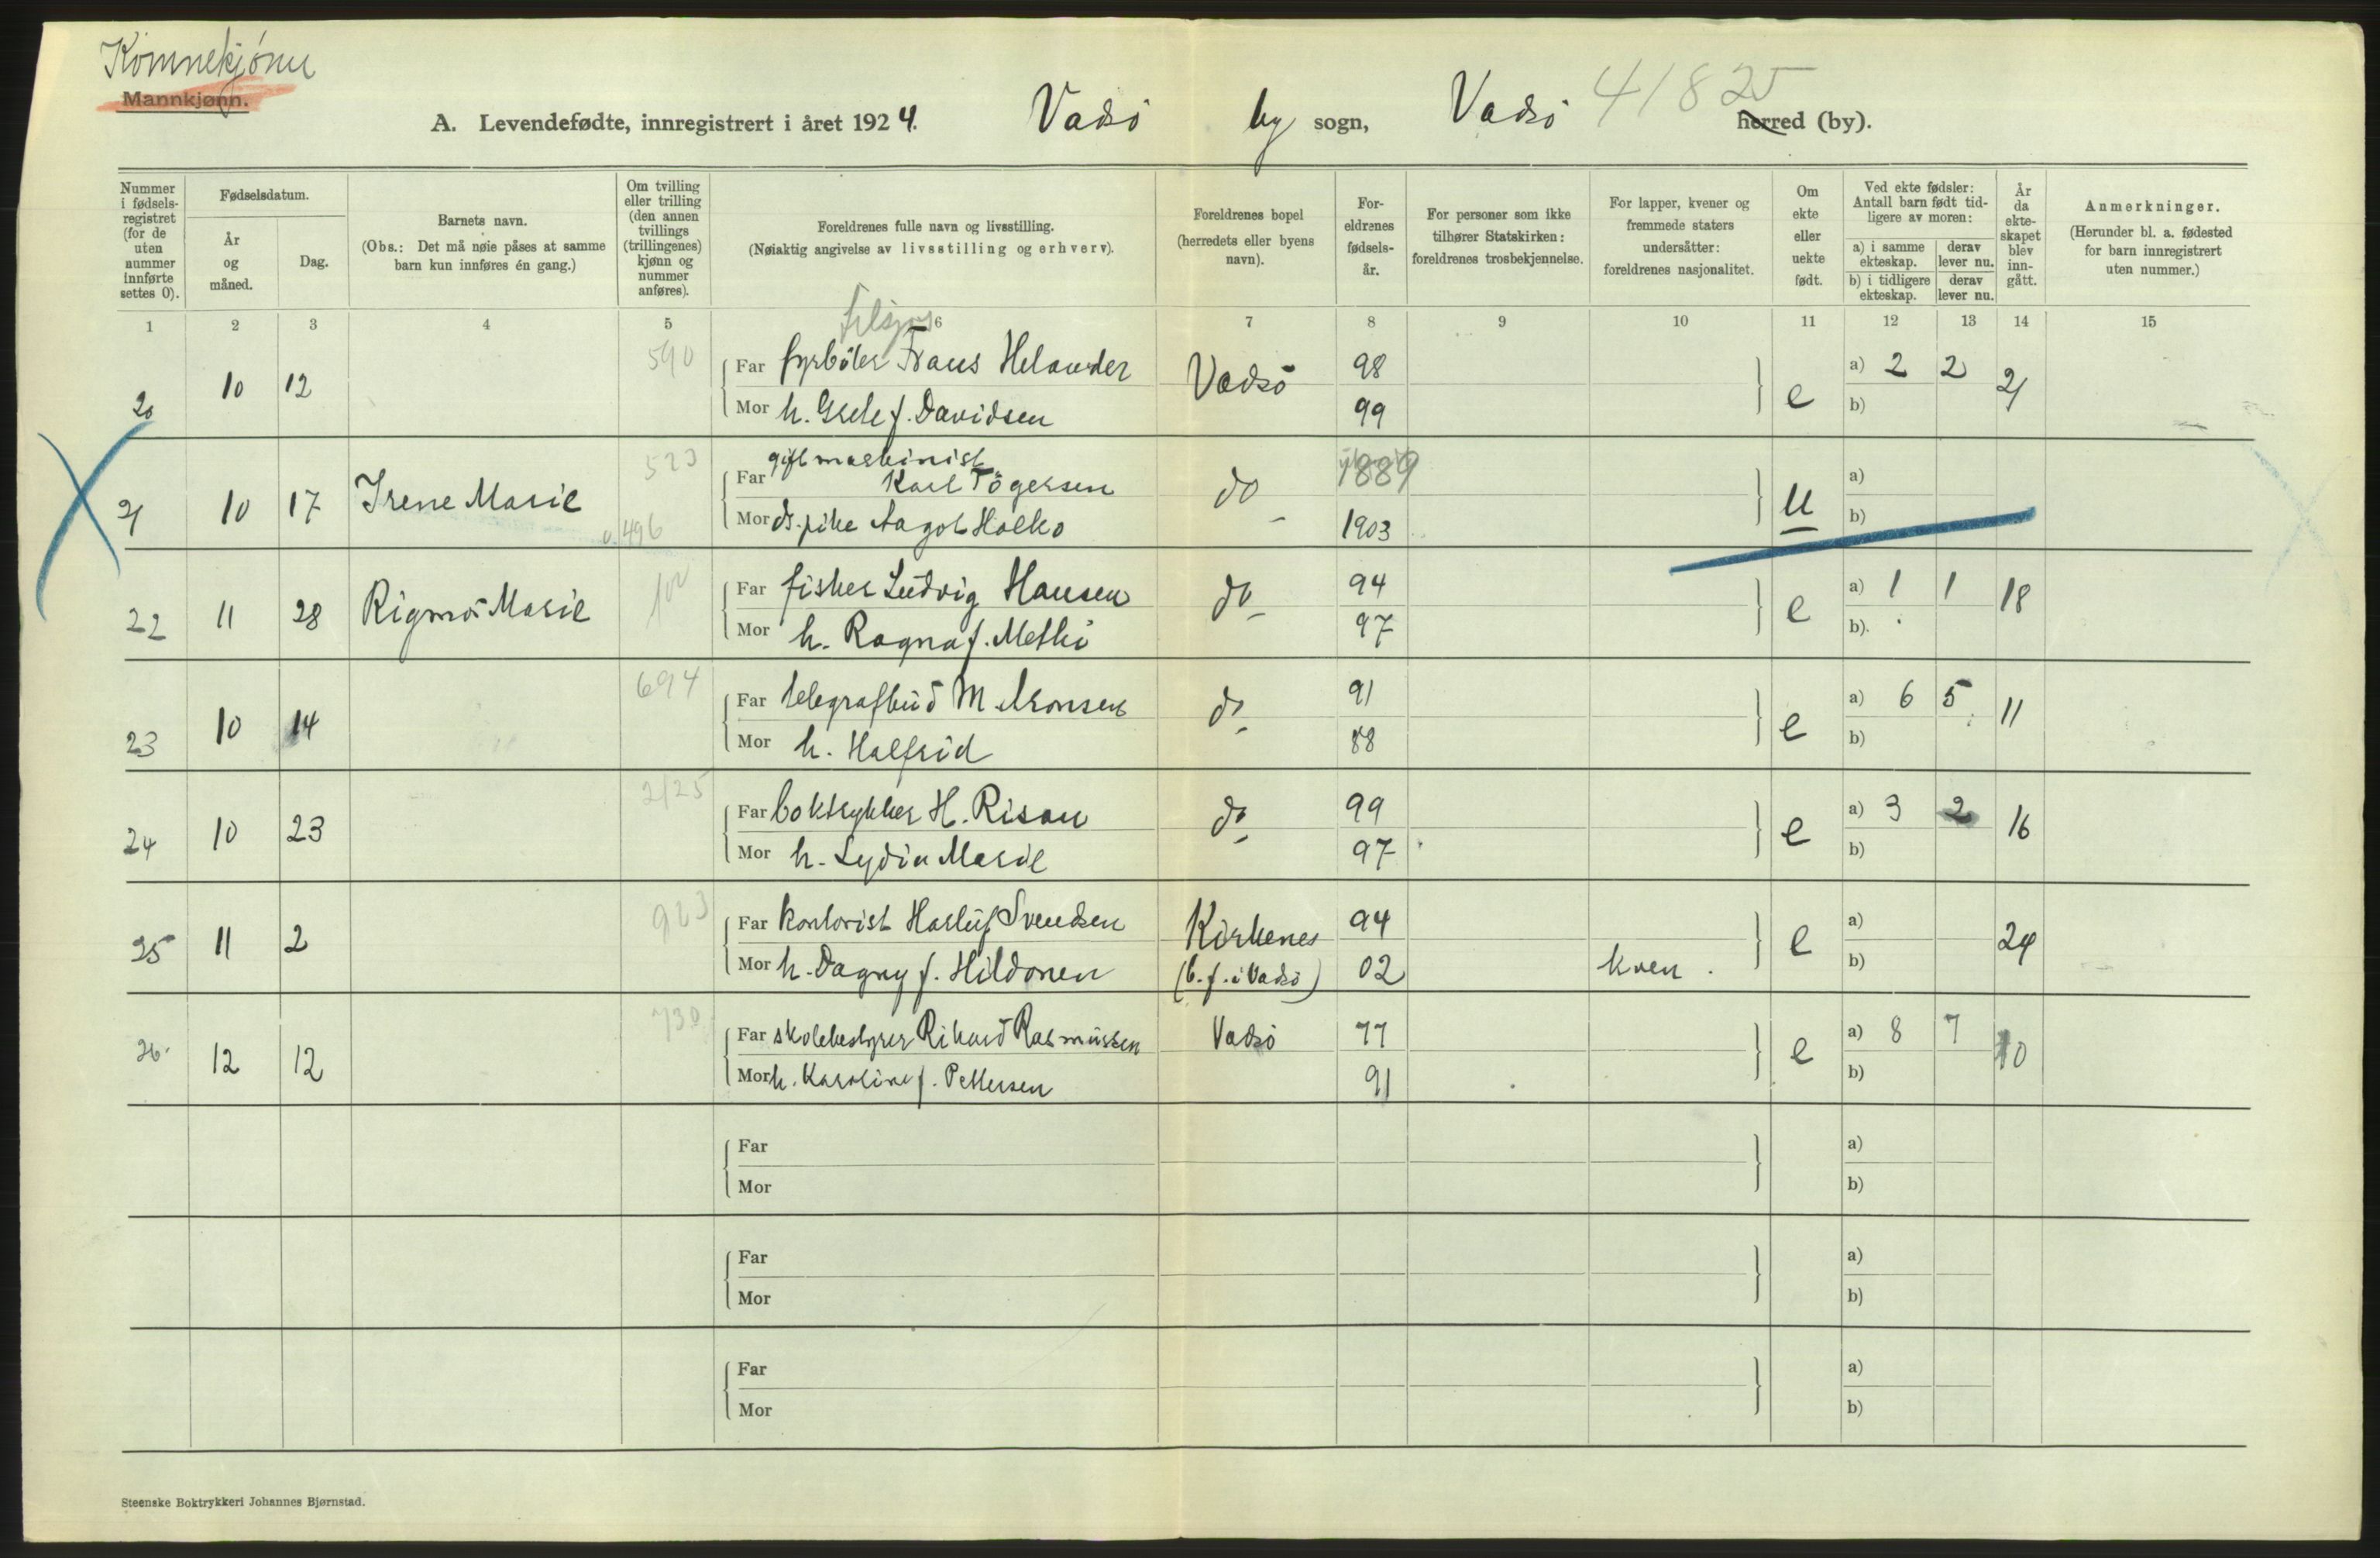 Kvinnekjønn
Mannkjønn.
A. Levendefødte, innregistrert i året 1924. Vadsö by sogn, Vadsö herred (by).
41825
Nummer i fødsels-registret (for de uten nummer innførte settes 0).
Fødselsdatum.
År og måned.
Dag.
Barnets navn.
(Obs.: Det må nøie påses at samme barn kun innføres én gang.)
Om tvilling eller trilling (den annen tvillings (trillingenes) kjønn og nummer anføres).
Foreldrenes fulle navn og livsstilling.
(Nøiaktig angivelse av livsstilling og erhverv).
Foreldrenes bopel (herredets eller byens navn).
For-eldrenes fødsels-år.
For personer som ikke tilhører Statskirken: foreldrenes trosbekjennelse.
For lapper, kvener og fremmede staters undersåtter: foreldrenes nasjonalitet.
Om ekte eller uekte født.
Ved ekte fødsler: Antall barn født tid-ligere av moren:
a) i samme ekteskap. derav lever nu.
b) i tidligere ekteskap. derav lever nu.
År da ekte-skapet blev inn-gått.
Anmerkninger.
(Herunder bl. a. fødested for barn innregistrert uten nummer.)
1 2 3 4 5 6 7 8 9 10 11 12 13 14 15
20 10 12 590 Far fyrböter Frans Helander Vadsö 98 e a) 2 2 21
Mor h. Grete f. Davidsen 99 b)
21 10 17 Irene Marie 523 gift maskinist
Far Karl Tögersen do 1889 u a)
496 Mor ds. pike Aagot Holko 1903 b)
22 11 28 Rigmor Marie Far fisker Ludvig Hansen do 94 e a) 1 1 18
Mor h. Ragna f. Methi 97 b)
23 10 14 694 Far telegrafbud M. Aronsen do 91 e a) 6 5 11
Mor h. Halfrid 88 b)
24 10 23 2/25 Far boktrykker H. Risan do 99 e a) 3 2 16
Mor h. Lydia Marie 97 b)
25 11 2 923 Far kontorist Harluf Svendsen Kirkenes 94 e a) 24
Mor h. Dagny f. Hildonen (b. f. i Vadsö) 02 kven. b)
26. 12 12 730 Far skolebestyrer Rikard Rasmussen Vadsö 77 e a) 8 7 10
Mor h. Karoline f. Pettersen 91 b)
Far a)
Mor b)
Far a)
Mor b)
Far a)
Mor b)
Steenske Boktrykkeri Johannes Bjørnstad.